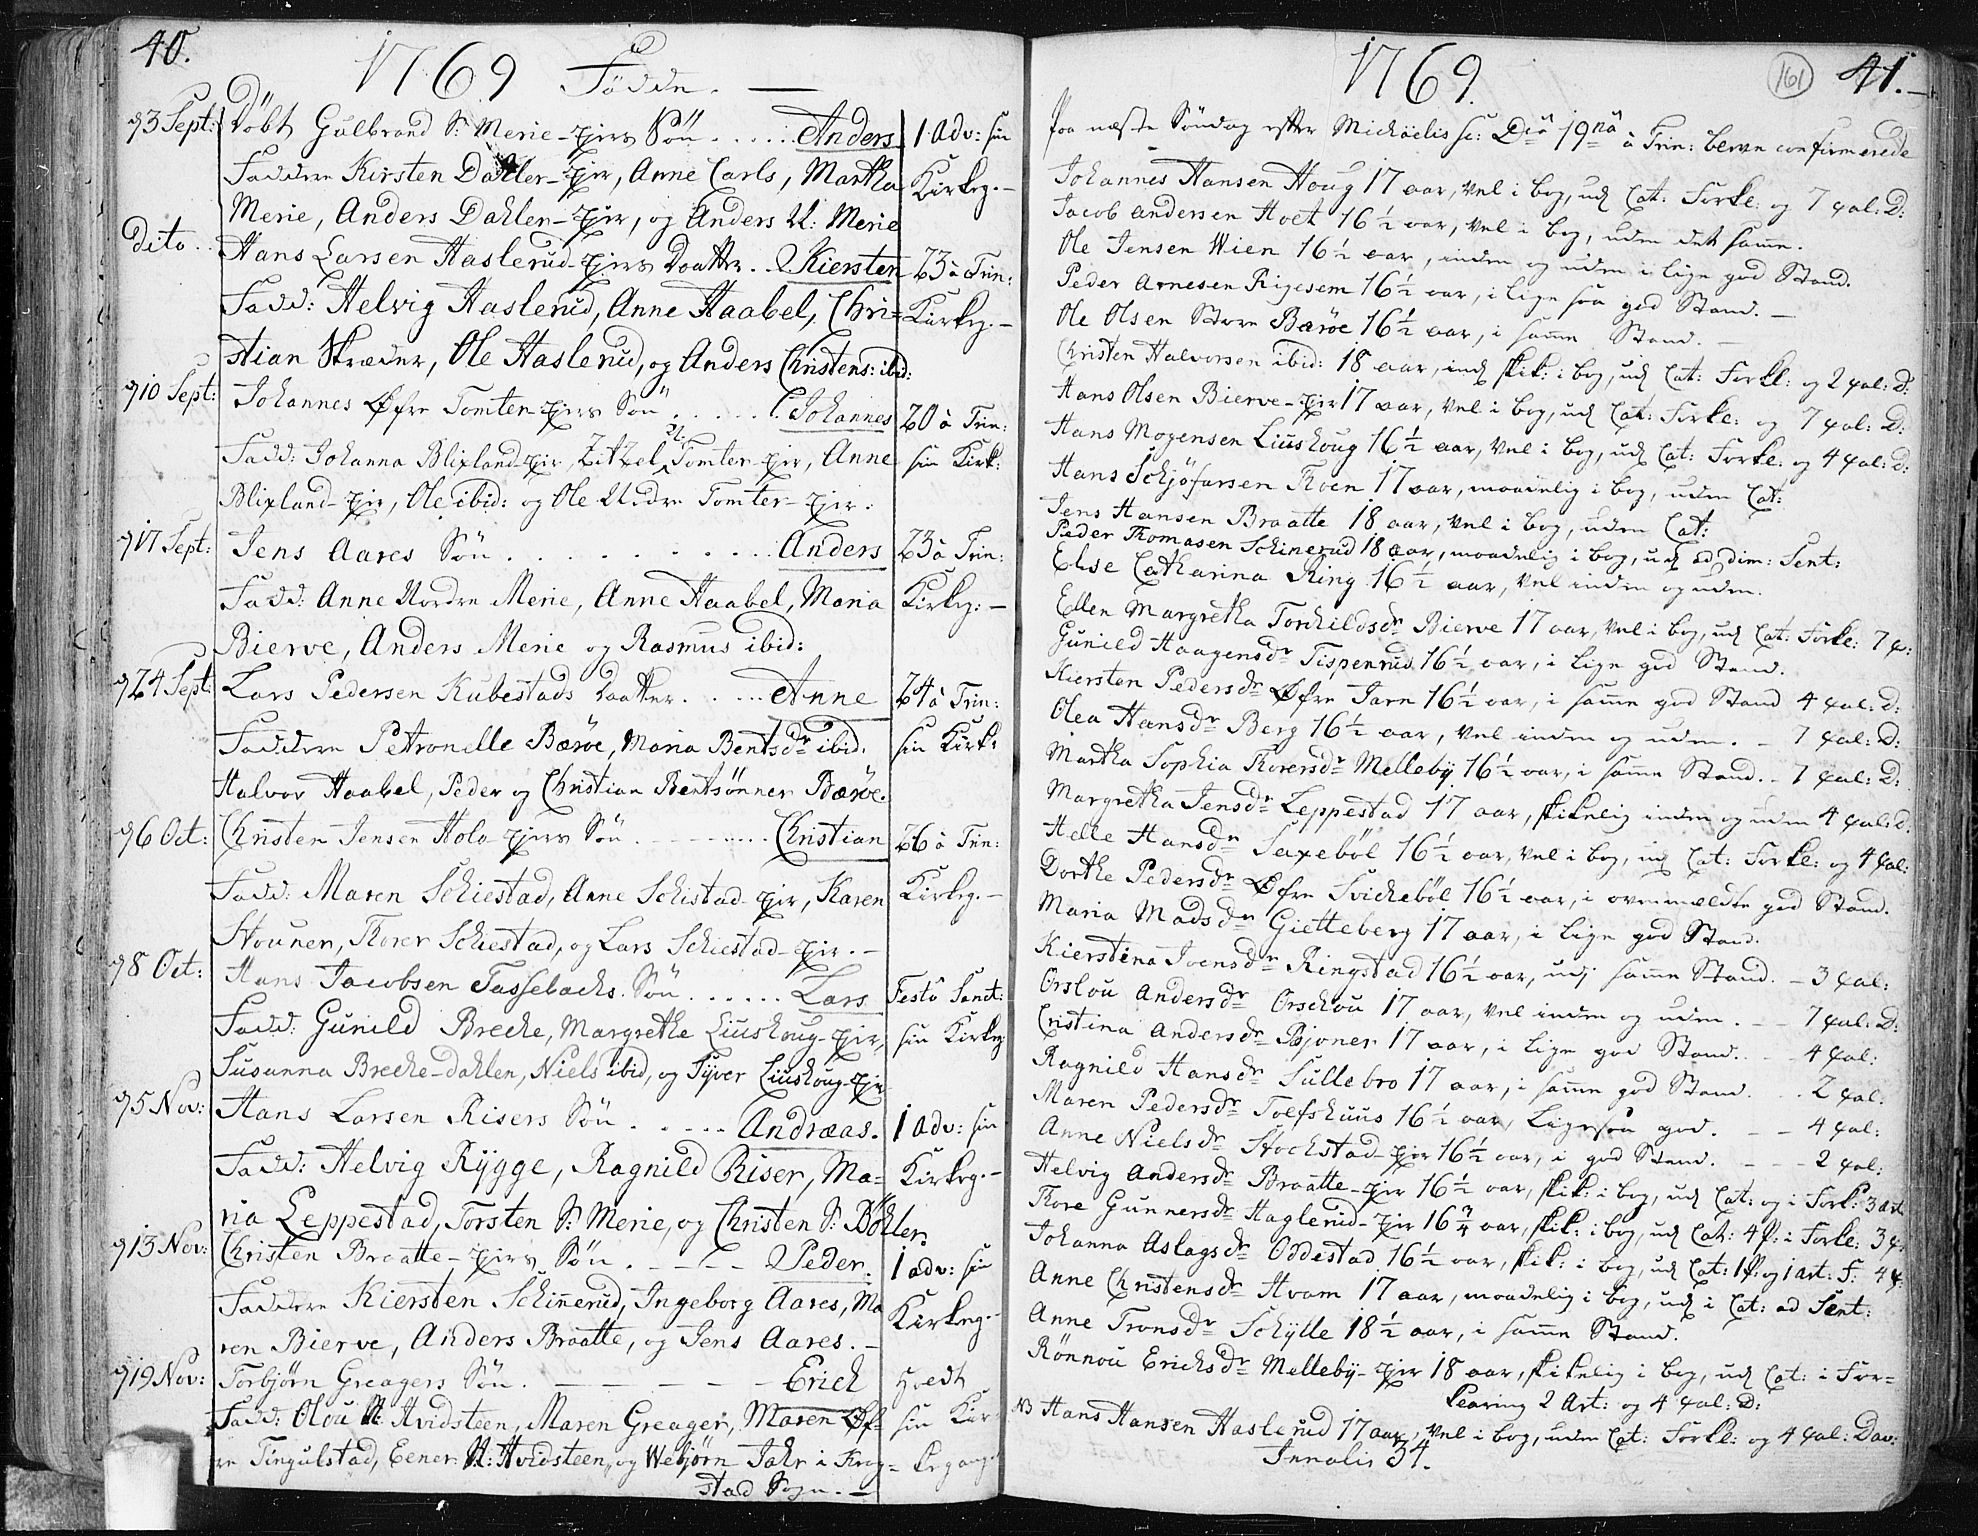 40.
1769 Fødde. —
93 Sept: Døbt Gulbrand S: Merie-ejers Søn ..... Anders 1 Adv: sin
Faddere Kirsten Dahler-ejer, Anne Carls, Martha Kirkeg. —
Merie, Anders Dahlen-ejer, og Anders N: Merie
Dito. Hans Larsen Haslerud-ejers Daatter. . . Kiersten 23 à Trin:
Fadd: Helvig Haslerud, Anne Haabel, Chri= Kirkeg. —
stian Skræder, Ole Haslerud, og Anders Christens: ibid:
910 Sept: Johannes Øfre Tomter-ejers Søn ...... Johannes 20 à Trin:
Fadd: Johanna Blixland-ejer, Zitzel N. Tomter-ejer, Anne sin Kirk:
Blixland-ejer, Ole ibid: og Ole Nedre Tomter-ejer.
917 Sept: Jens Aares Søn . . . . . . . . . Anders 23 à Trin:
Fadd: Anne Nordre Merie, Anne Haabel, Maria Kirkeg: —
Bierve, Anders Merie og Rasmus ibid:
924 Sept: Lars Pedersen Kubestads Daatter. . . . Anne 24 à Trin:
Faddere Petronelle Bærøe, Maria Bentsdr ibid. sin Kirk:
Halvor Haabel, Peder og Christian Bentsønner Bærøe.
96 Oct: Christen Jensen Holo-ejers Søn . . . . . Christian 26 à Trin:
Fadd: Maren Schiestad, Anne Schistad-ejer, Karen Kirkeg. —
Houner, Thorer Schiestad, og Lars Schiestad-ejer. —
98 Oct: Hans Jacobsen Tassebachs Søn . . . . . . Lars Festo Sanct:
Fadd: Gunild Breche, Margrethe Liushoug-ejer, sin Kirkeg:
Susanna Breche-dahlen, Niels ibid, og Syver Liushoug-ejer
95 Nov: Hans Larsen Risers Søn . . . . . Andræas. 1 Adv: sin
Fadd: Helvig Rygge, Ragnild Riser, Ma= Kirkeg. —
ria Leppestad, Torsten S: Merie, og Christen S: Bøhler.
913 Nov: Christen Braatte-ejers Søn . — — — Peder. 1 Adv: sin
Faddere Kiersten Schinerud, Ingeborg Aares, Ma Kirkeg. —
ren Bierve, Anders Braatte, og Jens Aares. —
919 Nov: Torbjørn Greagers Søn. — — — — — Erich holdt
Fadd: Olou N: Hvidsteen, Maren Greager, Maren Øf= sin Kir=
re Tingulstad, Eener N: Hvidsteen, og Webjørn Jahr i Krog= kegang.
stad Sogn. —
1769. 161 41.
Paa næste Søndag efter Michaëlis sc: Dca 19na à Trin: bleve confirmerede
Johannes Hansen Houg 17 aar, vel i bog, udj Cat: Forkl: og 7 ψal: D:
Jacob Andersen Hoel 16 ½ aar, vel i bog, uden det samme.
Ole Jensen Wien 16 ½ aar, inden og uden i lige god Stand.
Peder Arnesen Rigesem 16 ½ aar, i lige saa god Stand. —
Ole Olsen Store Bærøe 16 ½ aar, i samme Stand. —
Christen Halvorsen ibid: 18 aar, ind skik: i bog, udj Cat: Forkl: og 2 ψal: D:
Hans Olsen Bierve-ejer 17 aar, vel i bog, udj Cat: Forkl: og 7 ψal: D:
Hans Mogensen Liushoug 16 ½ aar, vel i bog, udj Cat: Forkl: og 4 ψal: D:
Hans Schjøfarsen Thoen 17 aar, maadelig i bog, uden Cat:
Jens Hansen Braatte 18 aar, vel i bog, uden Cat:
Peder Thomasen Schinerud 18 aar, maadelig i bog, udj ad dim: Sent:
Else Catharina Ring 16 ½ aar, vel inden og uden.
Ellen Margretha Torchildsdr Bierve 17 aar, vel i bog, udj Cat: Forkl: 7 ψ:
Gunild Haagensdr Tispenrud 16 ½ aar, i lige god Stand.
Kiersten Pedersdr Øfre Jarn 16 ½ aar, i samme god Stand 4 ψal: D:
Olea Hansdr Berg 16 ½ aar, vel inden og uden. — 7 ψal: D:
Martha Sophia Thorersdr Melleby 16 ½ aar, i samme Stand. - 7 ψal: D:
Margretha Jensdr Leppestad 17 aar, skikelig inden og uden 4 ψal: D:
Helle Hansdr Saxebøl 16 ½ aar, vel i bog, udj Cat: Forkl: og 4 ψal:
Dorthe Pedersdr Øfre Svichebøl 16 ½ aar, i ovenmældte god Stand.
Maria Madsdr Gietteberg 17 aar, i lige god Stand.
Kierstina Joensdr Ringstad 16 ½ aar, udj samme Stand. — 3 ψal:
Orslou Andersdr Orschou 17 aar, vel inden og uden. — — 7 ψal: D:
Cristina Andersdr Bjoner 17 aar, i lige god Stand. — — 4 ψal:
Ragnild Hansdr Sullebro 17 aar, i samme god Stand. . . 2 ψal:
Maren Pedersdr Toefshuus 16 ½ aar, ligesaa god. — — 4 ψal:
Anne Nielsdr Stochstad-ejer 16 ½ aar, i god Stand. — — — 2 ψal:
Helvig Andersdr Braatte-ejer 16 ½ aar, skik: i bog, udj Cat: og i Forkl: 3 art
Thore Gunnersdr Haglerud-ejer 16 ¾ aar, skik: i bog, udj Cat: 4 P: i Forkl: 3 ψ:
Johanna Aslagsdr Oddestad 16 ½ aar, skik: i bog, udj Cat: 1 P: og 1 art: F: 4 ψ:
Anne Christensdr Hvam 17 aar, maadelig i bog, udj i Cat: ad Sent:
Anne Tronsdr Schylle 18 ½ aar, i samme Stand.
Rønnou Erichsdr Melleby-ejer 18 aar, skikelig i bog, udj Cat: i For=
klaring 2 Art: og 4 ψal: D:
NB Hans Hansen Haslerud 17 aar, vel i bog, uden Cat: Forkl: og 4 ψal: Dav:
Innalis 34.